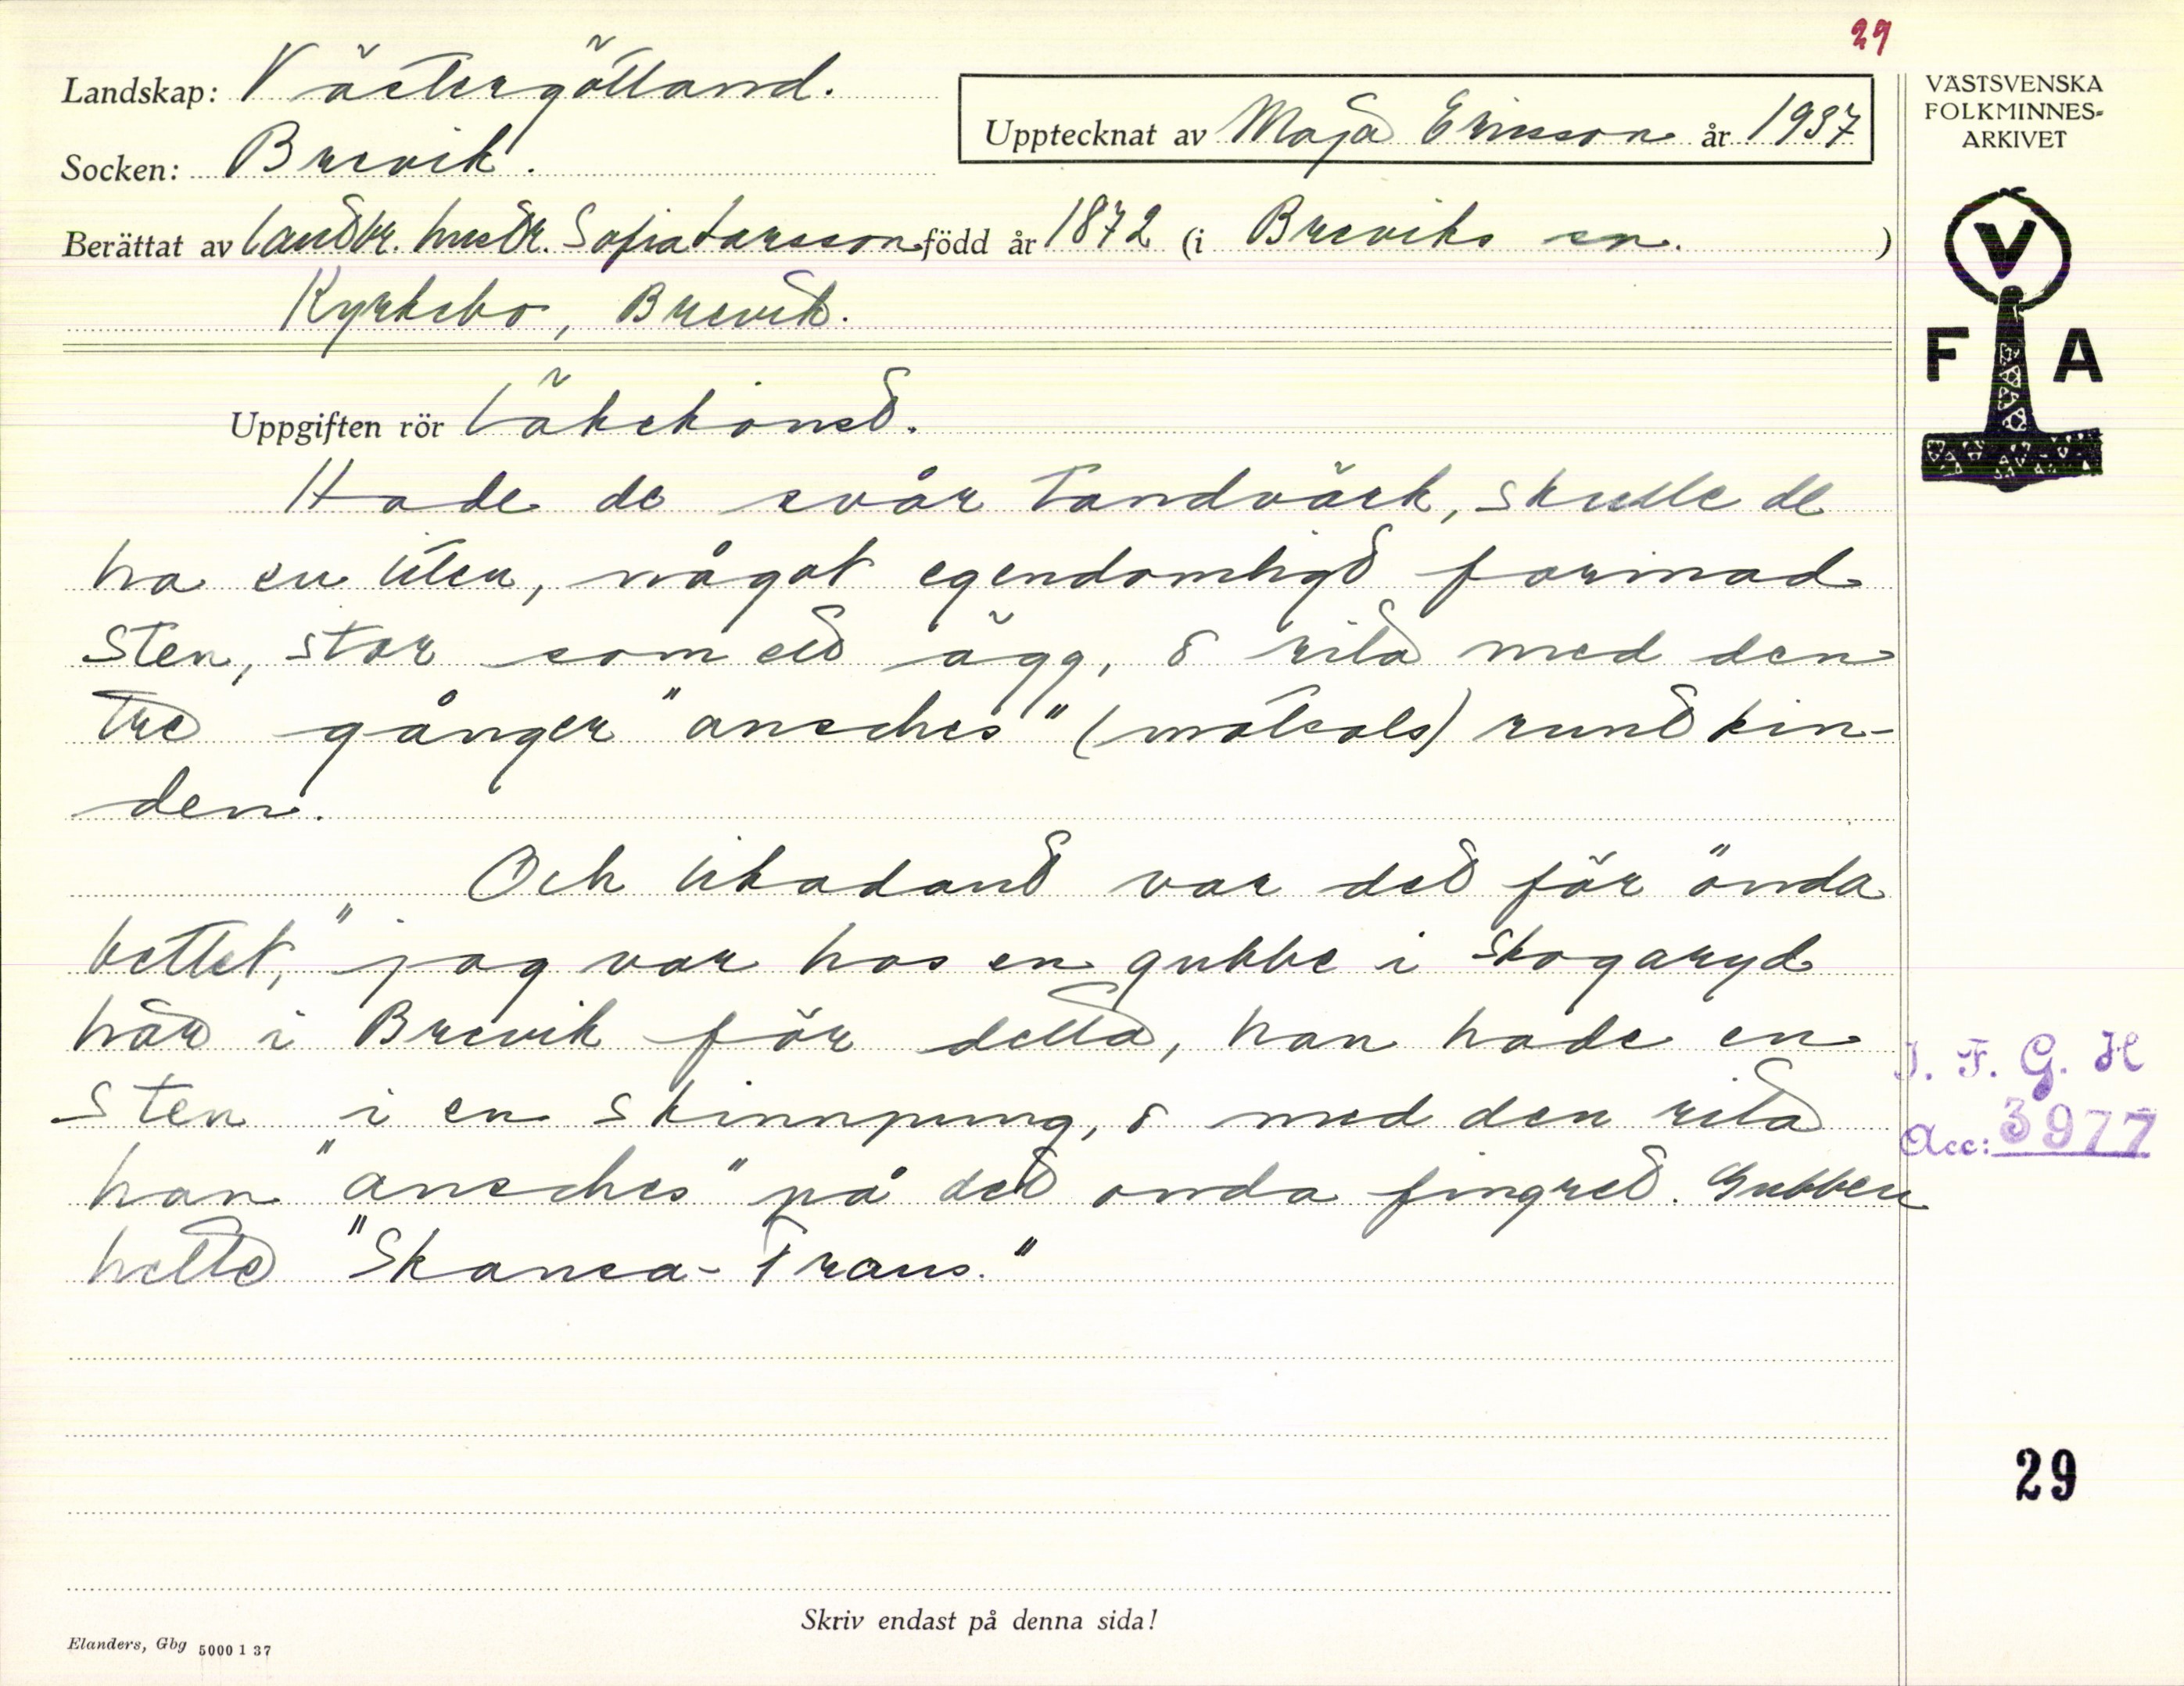 29
Landskap: Västergötland.
Socken: Brevik.
Upptecknat av Maja Ericsson år 1937
VÄSTSVENSKA
FOLKMINNES-
ARKIVET
Berättat av landbr. hustr. Sofia Larsson född år 1872 (i Breviks sn. )
Kyrkebo, Brevik.
V
F A
Uppgiften rör Läkekonst.
Hade de svår tandvärk, skulle de
ha en liten, något egendomligt formad
sten, stor som ett ägg, & rita med den
tre gånger "ansches" (motsols) runt kin-
den.
Och likadant var det för "önda
bettet," jag var hos en gubbe i Skogaryd
här i Brevik för detta, han hade en
sten i en skinnpung, & med den rita
han "ansches" på det onda fingret. Gubben
hette "Skansa-Frans."
I. F. G. H
Acc: 3977
29
Skriv endast på denna sida!
Elanders, Gbg 5000 1 37